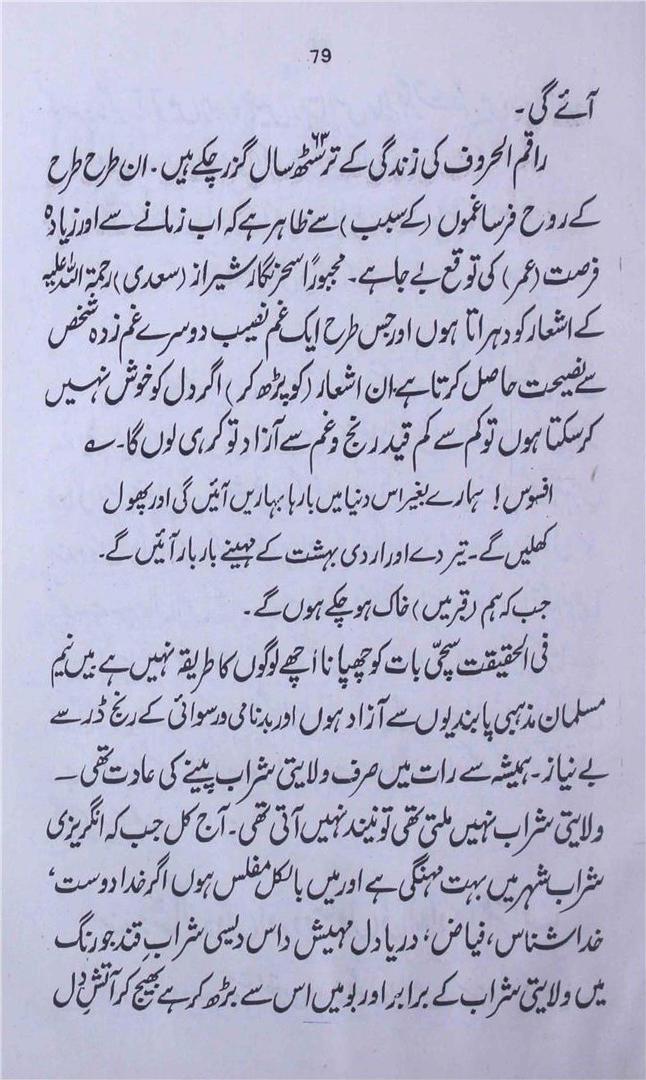 79
آئے گی۔
راقم الحروف کی زندگی کے ترسٹھ ۶۳ سال گزر چکے ہیں۔ ان طرح طرح
کے روح فرسا غموں (کے سبب) سے ظاہر ہے کہ اب زمانے سے اور زیادہ
فرصت (عمر) کی توقع بے جا ہے۔ مجبوراً سحر نگار شیراز (سعدی) رحمۃ اللہ علیہ
کے اشعار کو دہراتا ہوں اور جس طرح ایک غم نصیب دوسرے غم زدہ شخص
سے نصیحت حاصل کرتا ہے، ان اشعار (کو پڑھ کر) اگر دل کو خوش نہیں
کر سکتا ہوں تو کم سے کم قید رنج و غم سے آزاد تو کر ہی لوں گا۔ ؎
افسوس! ہمارے بغیر اس دنیا میں بارہا بہاریں آئیں گی اور پھول
کھلیں گے۔ تیر دے اور اردی بہشت کے مہینے بار بار آئیں گے۔
جب کہ ہم (قبر میں) خاک ہو چکے ہوں گے۔
فی الحقیقت سچّی بات کو چھپانا اچھے لوگوں کا طریقہ نہیں ہے میں نیم
مسلمان مذہبی پابندیوں سے آزاد ہوں اور بدنامی و رسوائی کے رنج ڈر سے
بے نیاز۔ ہمیشہ سے رات میں صرف ولایتی شراب پینے کی عادت تھی۔
ولایتی شراب نہیں ملتی تھی تو نیند نہیں آتی تھی۔ آج کل جب کہ انگریزی
شراب شہر میں بہت مہنگی ہے اور میں بالکل مفلس ہوں اگر خدا دوست،
خدا شناس، فیاض، دریا دل مہیش داس دیسی شراب قند جو رنگ
میں ولایتی شراب کے برابر اور بو میں اس سے بڑھ کر ہے بھیج کر آتشِ دل